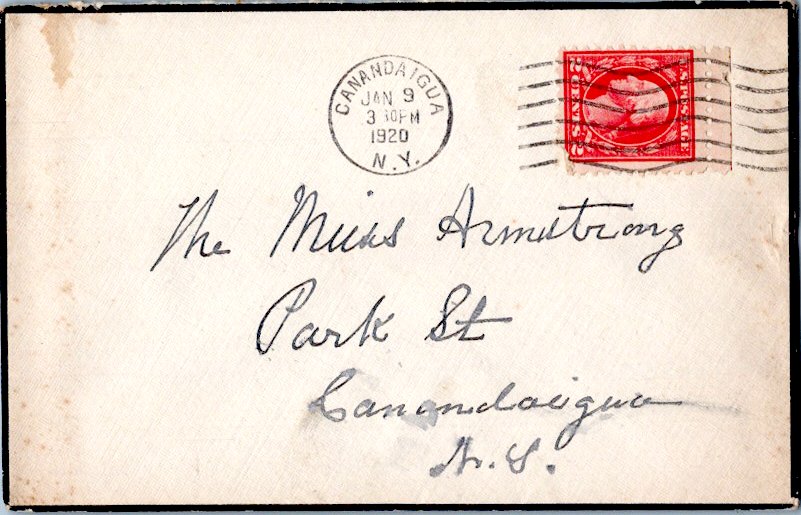 CANANDAIGUA
JAN 9
3 30PM
1920
N.Y.
The Misses Armstrong
Park St
Canandaigua
N.Y.